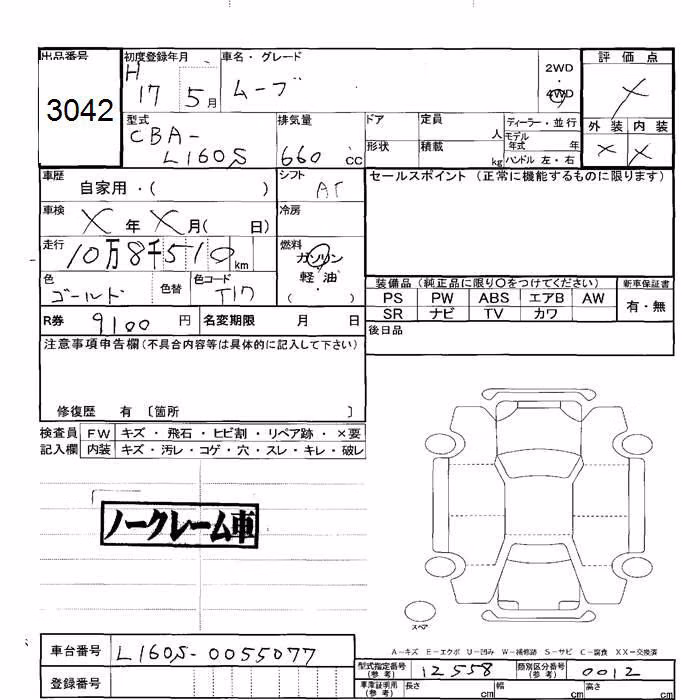 出品番号 初度登録年月 車名・グレード 2WD 評価点
3042 H17 5月 ムーブ 4WD X
型式 排気量 ドア 定員 人 ディーラー・並行 外装 内装
CBA- モデル年式 年
L160S 660 CC 形状 積載 kg ハンドル 左・右 X X
車歴 シフト セールスポイント (正常に機能するものに限ります)
自家用・( ) AT
車検 冷房
X年X月( 日)
走行 燃料
10万8千510km ガソリン
色 色替 色コード 軽油
ゴールド T17 ( )
装備品(純正品に限り○をつけてください) 新車保証書
PS PW ABS エアB AW 有・無
SR ナビ TV カワ
R券 9100円 名変期限 月 日
後日品
注意事項申告欄(不具合内容等は具体的に記入して下さい)
修復歴 有 〔箇所 〕
検査員 FW キズ・飛石・ヒビ割・リペア跡・×要
記入欄 内装 キズ・汚レ・コゲ・穴・スレ・キレ・破レ
ノークレーム車
スペア
A-キズ E-エクボ U-凹み W-補修跡 S-サビ C-腐食 XX-交換済
車台番号 L160S-0055077
型式指定番号(参考) 12558 類別区分番号(参考) 0012
登録番号
車庫証明用(参考) 長さ cm 幅 cm 高さ cm